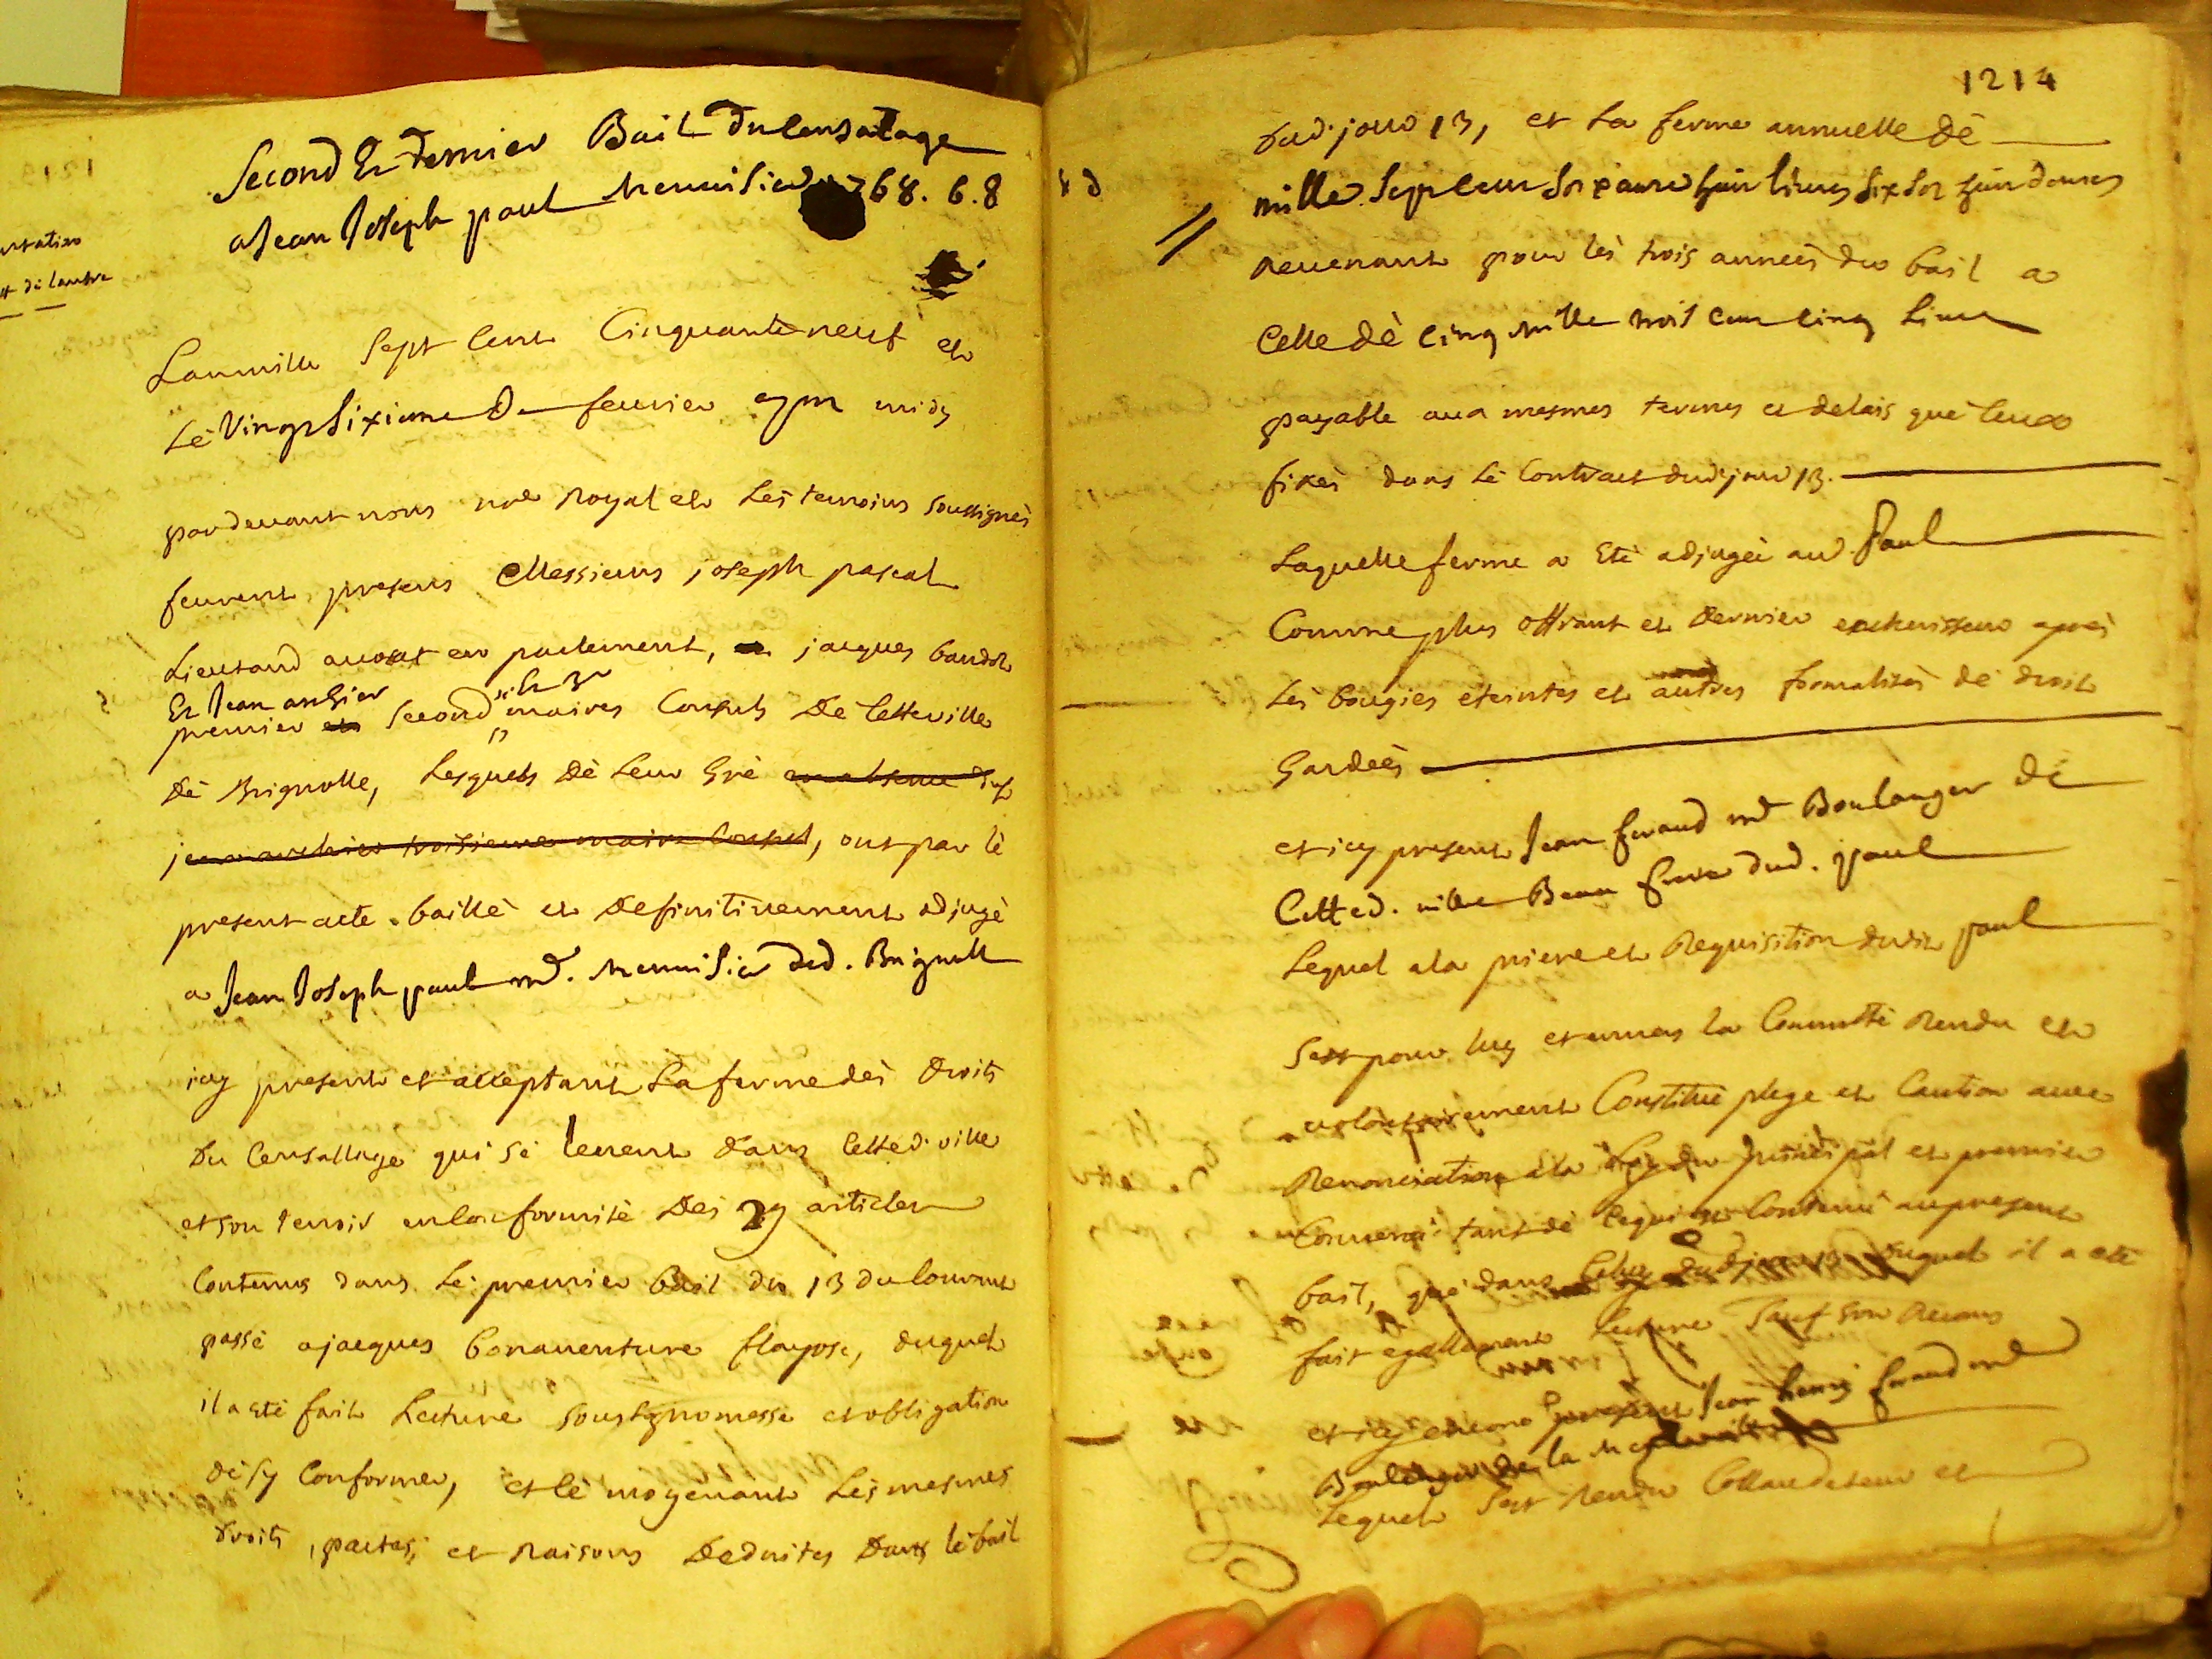 Second Et dernier Bail du Censalage
a Jean Joseph paul menuisier 1768. 6. 8
Lan mille sept cent Cinquante neuf et
Lè Vingt sixieme de fevrier apm midy
pardevant nous nre Royal et Lès temoins soussignès
feurent presens Messieurs joseph pascal
Lieutaud avocat en parlement, jacques baudol
Et Jean anthier
premier second maires Consuls De cetteville
Dè Brignolle, Lesquels Dè Leur Grè en absence du s.r
jean anthier troisieme maire Consul, ont par lè
present acte baillè et Definitivement adjugè
a Jean Joseph paul md. menuisier ded. Brignolle
icy present et acceptant La ferme dès Droits
Du Censallage qui sè levent dans cetted. ville
et son terroir en conformitè Dès 29 articles
Contenus dans Lè premier bail du 13 du Courant
passè a jacques bonaventure flayosc, duquel
il a etè fait Lecture sous promesse et obligation
dè sy Conformer, et lè moyenant Lès mesmes
droits, pactes, et Raisons Deduites Dans lè bail
ortation
et dè lautre
1214
dud. jour 13, et La ferme annuelle Dè
mille sept cent soixante huit livres six sols huit deniers
Revenant pour lès trois années du bail a
Celle dè cinq mille trois cent cinq Livres
payable aux mesmes termes et delais què ceux
fixès dans Lè Contract dud. jour 13.
Laquelle ferme a Etè adjugée aud. Paul
Comme plus offrant et Dernier encherisseur après
Lès bougies eteintes et autres formalitès dè droit
Gardeès
et icy present Jean feraud md Boulanger dè
Cetted. ville Beau frere dud. paul
Lequel a la priere et Requisition dudit paul
sest pour luy et envers la Communtè Rendu et
volontairement Constituè plege et Caution avec
Renonciation a la Loy du principal et premier
Convenu tant dè cequi est Contenu au present
bail, què dans Celuy dud. jour 13 duquel il a etè
fait egallement Lecture sauf son Recours
et icy encore present Jean henry feraud md
Boulanger de la
Lequel sest Rendu Collaudateur et